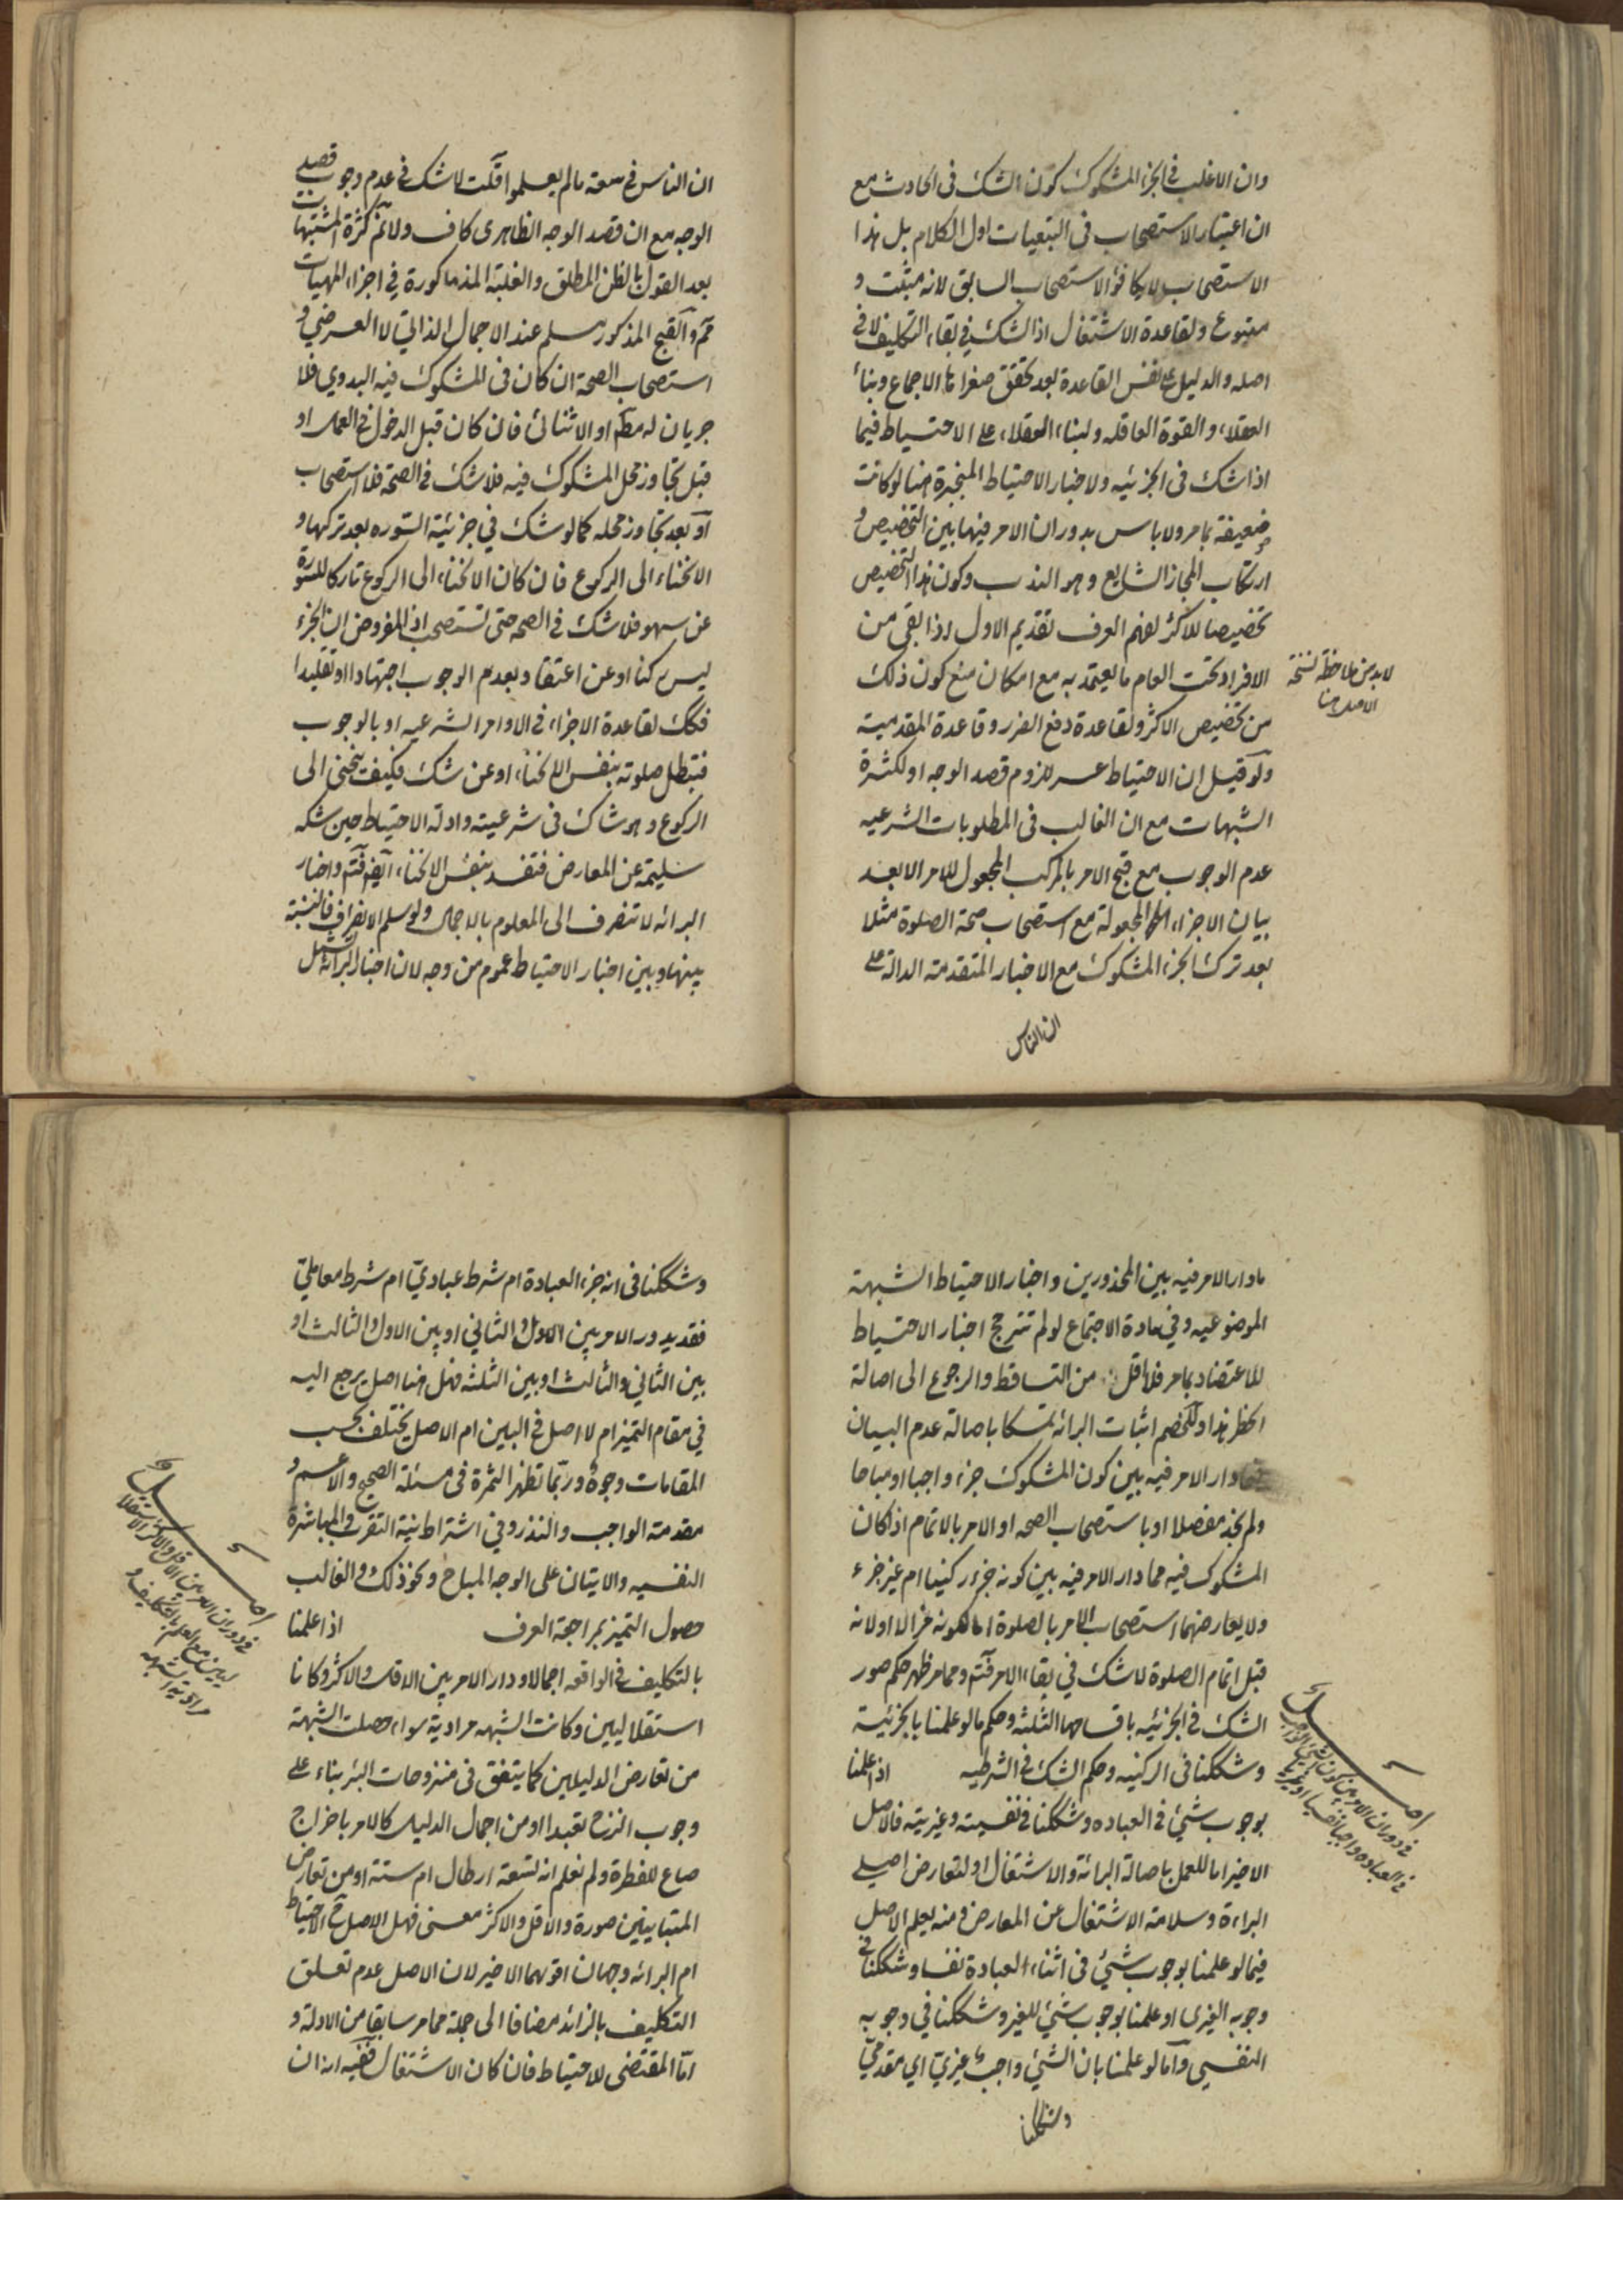 وان الاغلب في الجزء المشكوك كون الشك في الحادث مع
ان اعتبار الاستصحاب في التبعيات اول الكلام بل هذا
الاستصحاب لا يكافؤ الاستصحاب السابق لانه مثبت و
متبوع ولقاعدة الاشتغال اذ الشك في بقاء التكليف لا في
اصله والدليل على نفس القاعدة بعد تحقق صغراها الاجماع وبناء
العقلاء والقوة العاقله ولبناء العقلاء على الاحتياط فيما
اذا شك في الجزئيه ولاخبار الاحتياط المنجبرة هنا لو كانت
ضعيفة بما مر ولا باس بدوران الامر فيها بين التخصيص و
ارتكاب المجاز الشايع وهو الندب وكون هذا التخصيص
تخصيصا للاكثر لفهم العرف تقديم الاول اذا بقي من
الافراد تحت العام ما يعتد به مع امكان منع كون ذلك
من تخصيص الاكثر ولقاعدة دفع الضرر وقاعدة المقدمية
ولو قيل ان الاحتياط عسر للزوم قصد الوجه او لكثرة
الشبهات مع ان الغالب في المطلوبات الشرعيه
عدم الوجوب مع قبح الامر بالمركب المجعول للامر الا بعد
بيان الاجزاء المجعولة مع استصحاب صحة الصلوة مثلا
بعد ترك الجزء المشكوك مع الاخبار المتقدمة الدالة على
ان الناس
لا بد من ملاحظة نسخة
الاصل هنا
ان الناس في سعة ما لم يعلموا قلت لا شك في عدم وجوب قصد
الوجه مع ان قصد الوجه الظاهري كاف ولا نم كثرة المشتبهات
بعد القول بالظن المطلق والغلبة المذكورة في اجزاء المهيات
مم والقبح المذكور مسلم عند الاجمال الذاتي لا العرضي و
استصحاب الصحة ان كان في المشكوك فيه البدوي فلا
جريان له مط او الاثنائي فان كان قبل الدخول في العمل او
قبل تجاوز محل المشكوك فيه فلا شك في الصحة فلا استصحاب
او بعد تجاوز محله كما لو شك في جزئية السوره بعد تركها و
الانحناء الى الركوع فان كان الانحناء الى الركوع تاركا للسورة
عن سهو فلا شك في الصحه حتى تستصحب اذ المفروض ان الجزء
ليس ركنا او عن اعتقاد بعدم الوجوب اجتهادا او تقليدا
فكك لقاعدة الاجزاء في الاوامر الشرعيه او بالوجوب
فتبطل صلوته بنفس الانحناء او عن شك فكيف ينحني الى
الركوع وهو شاك في شرعيته وادلة الاحتياط حين شكه
سليمة عن المعارض فتفسد بنفس الانحناء ايضا فتم واخبار
البرائه لا تنصرف الى المعلوم بالاجمال ولو سلم الانصراف فالنسبة
بينها وبين اخبار الاحتياط عموم من وجه لان اخبار البرائة تشمل
ما دار الامر فيه بين المحذورين واخبار الاحتياط الشبهة
الموضوعيه وفي مادة الاجتماع لو لم تترجح اخبار الاحتياط
للاعتضاد بما مر فلا اقل من التساقط والرجوع الى اصالة
الحظر هذا وللخصم اثبات البرائة تمسكا باصالة عدم البيان
دار الامر فيه بين كون المشكوك جزء واجبا او مباحا
ولم نجد مفصلا او باستصحاب الصحه او الامر بالاتمام اذا كان
المشكوك فيه مما دار الامر فيه بين كونه جزء ركنيا ام غير جزء
ولا يعارضهما استصحاب الامر بالصلوة او لانه
قبل اتمام الصلوة لا شك في بقاء الامر فتم ومما مر ظهر حكم صور
الشك في الجزئيه باقسامها الثلثة وحكم ما لو علمنا بالجزئية
وشككنا في الركنيه وحكم الشك في الشرطيه اذا علمنا
بوجوب شئ في العباده وشككنا في نفسيته وغيريته فالاصل
الاخير اما للعمل باصالة البرائة والاشتغال او لتعارض اصلي
البراءة وسلامة الاشتغال عن المعارض ومنه يعلم الاصل
فيما لو علمنا بوجوب شئ في اثناء العبادة نفسا وشككنا في
وجوبه الغيري او علمنا بوجوب شئ للغير وشككنا في وجوبه
النفسي واما لو علمنا بان الشئ واجب غيري اي مقدمي
وشككنا
اصل
في دوران الامر بين كون الشئ الواجب
في العباده واجبا نفسيا او غيريا
وشككنا في انه جزء العبادة ام شرط عبادي ام شرط معاملي
فقد يدور الامر بين الاول والثاني او بين الاول والثالث او
بين الثاني والثالث او بين الثلثه فهل هنا اصل يرجع اليه
في مقام التميز ام لا اصل في البين ام الاصل يختلف بحسب
المقامات وجوه وربما تظهر الثمرة في مسئلة الصحيح والاعم و
مقدمة الواجب والنذر وفي اشتراط نية التقرب والمباشرة
النفسيه والاتيان على الوجه المباح ونحو ذلك والغالب
حصول التميز بمراجعة العرف اذا علمنا
بالتكليف في الواقعه اجمالا ودار الامر بين الاقل والاكثر وكانا
استقلاليين وكانت الشبهه مرادية سواء حصلت الشبهة
من تعارض الدليلين كما يتفق في منزوحات البئر بناء على
وجوب النزح تعبدا او من اجمال الدليل كالامر باخراج
صاع للفطرة ولم نعلم انه تسعة ارطال ام ستة او من تعارض
المتباينين صورة والاقل والاكثر معنى فهل الاصل ح الاحتياط
ام البرائه وجهان اقويهما الاخير لان الاصل عدم تعلق
التكليف بالزائد مضافا الى جملة مما مر سابقا من الادلة و
اما المقتضى للاحتياط فان كان الاشتغال ففيه ان
اصل
في دوران الامر بين الاقل والاكثر الاستقلا
ليين مع العلم بالتكليف و
مرادية الشبهه